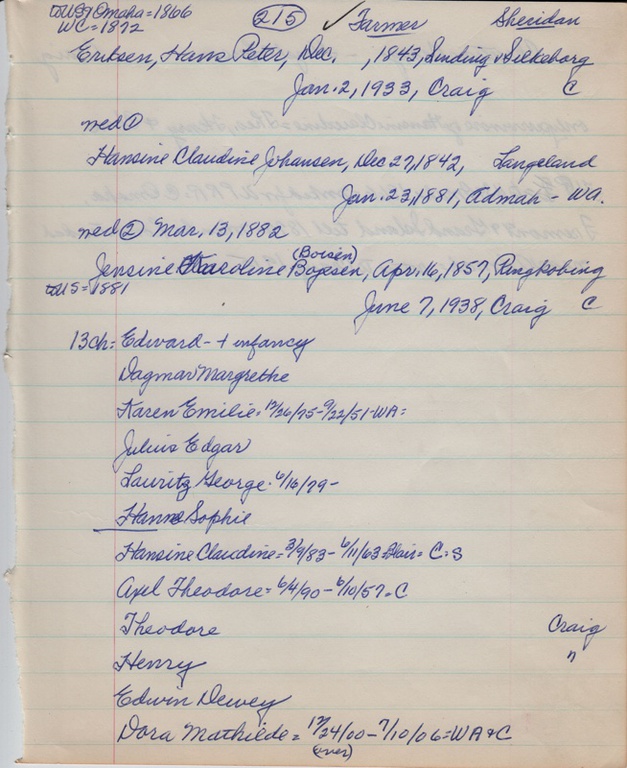 to US, Omaha = 1866 (215) ✓ Farmer Sheridan
WC = 1872
Eriksen, Hans Peter, Dec. , 1843, Sinding v Silkeborg
Jan. 2, 1933, Craig C
med ①
Hansine Claudine Johansen, Dec 27, 1842, Langeland
Jan. 23, 1881, Admah - WA.
med ② Mar. 13, 1882
(Boisen)
Jensine Karoline Bojesen, Apr. 16, 1857, Ringkobing
to US = 1881
June 7, 1938, Craig C
13 ch: Edward - + infancy
Dagmar Margrethe
Karen Emilie = 12/26/75 - 9/22/51 - WA =
Julius Edgar
Lauritz George = 6/16/79 -
Hanne Sophie
Hansine Claudine = 3/9/83 - 6/11/63 = Blair = C = S
Axel Theodore = 6/4/90 - 6/10/57 = C
Theodore Craig
Henry "
Edwin Dewey
Dora Mathilde = 12/24/00 - 7/10/06 = WA & C
(over)